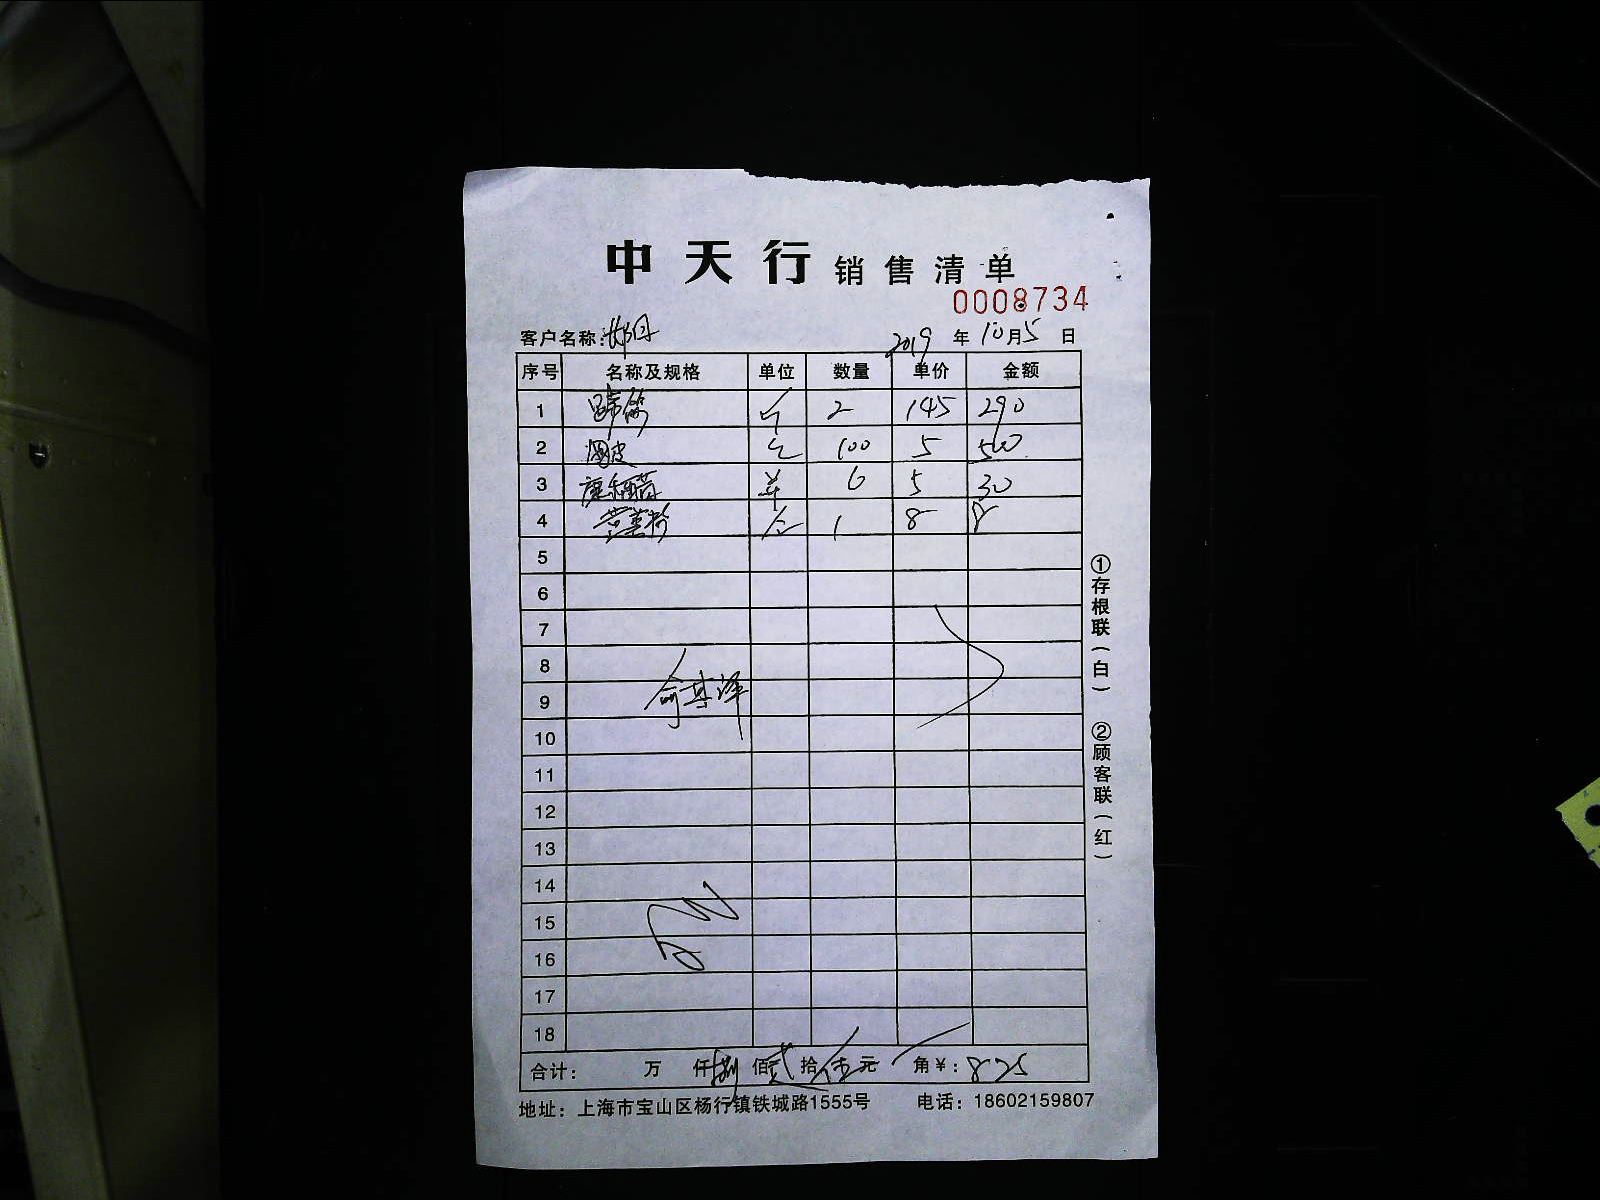 中天行 销售清单
0008734
客户名称: 2019 年 10月5 日
序号 名称及规格 单位 数量 单价 金额
1 蹄筋 斤 2 145 290
2 100 5 500
3 6 5 30
4 1 8 8
5
6
7
8
9
10
11
12
13
14
15
16
17
18
合计: 万 仟捌 佰贰 拾伍元 角¥:825
地址:上海市宝山区杨行镇铁城路1555号 电话:18602159807
①存根联(白) ②顾客联(红)